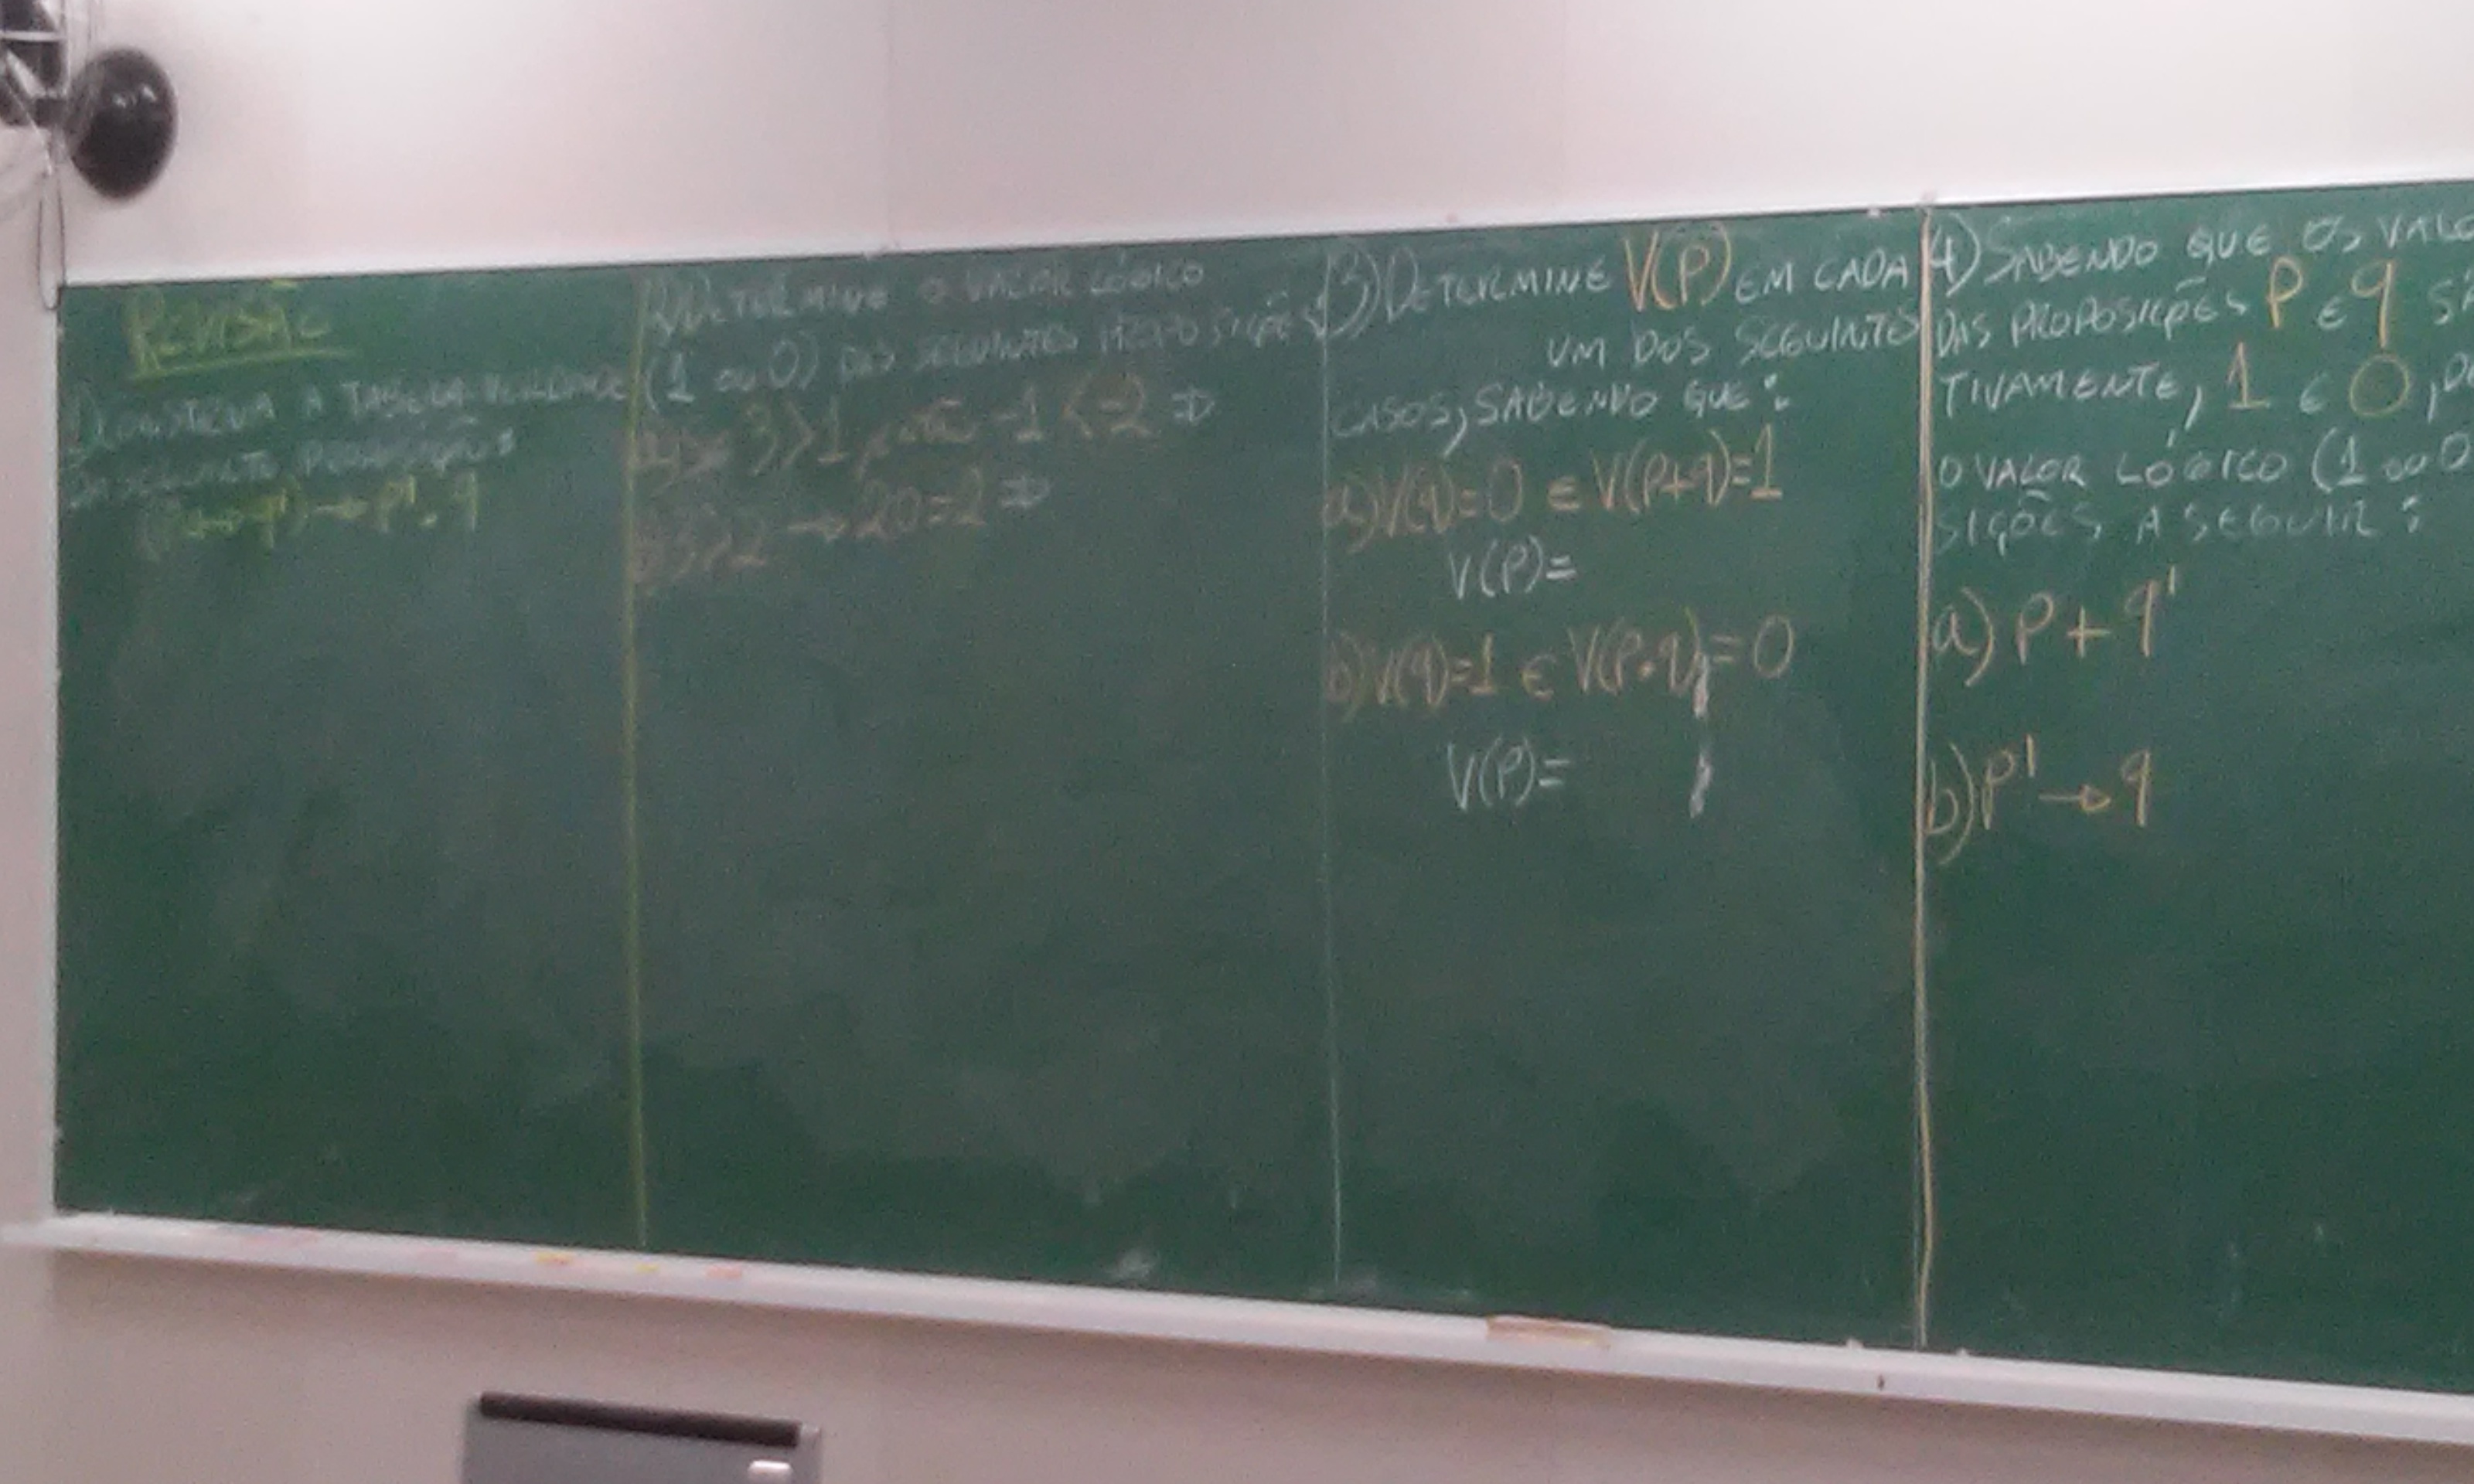 REVISÃO
1) CONSTRUA A TABELA VERDADE
DA SEGUINTE PROPOSIÇÃO:
→ p'.q
2) DETERMINE O VALOR LÓGICO
(1 ou 0) DAS SEGUINTES PROPOSIÇÕES
a) 3>1 -1<-2 ⇒
b) 5>2 → 20=2 ⇒
3) DETERMINE V(P) EM CADA
UM DOS SEGUINTES
CASOS, SABENDO QUE:
a) V(q)=0 E V(p+q)=1
V(P)=
b) V(q)=1 E V(p.q)=0
V(P)=
4) SABENDO QUE OS
DAS PROPOSIÇÕES P E q
TIVAMENTE, 1 E 0,
O VALOR LÓGICO (1 ou 0
SIÇÕES A SEGUIR:
a) P+q'
b) P' → q